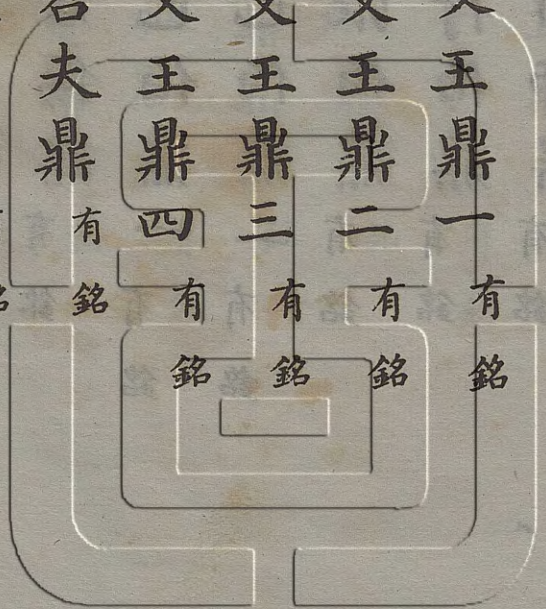 文王鼎一有銘
文王鼎二有銘
文王鼎三有銘
文王鼎四有銘
夫鼎有銘